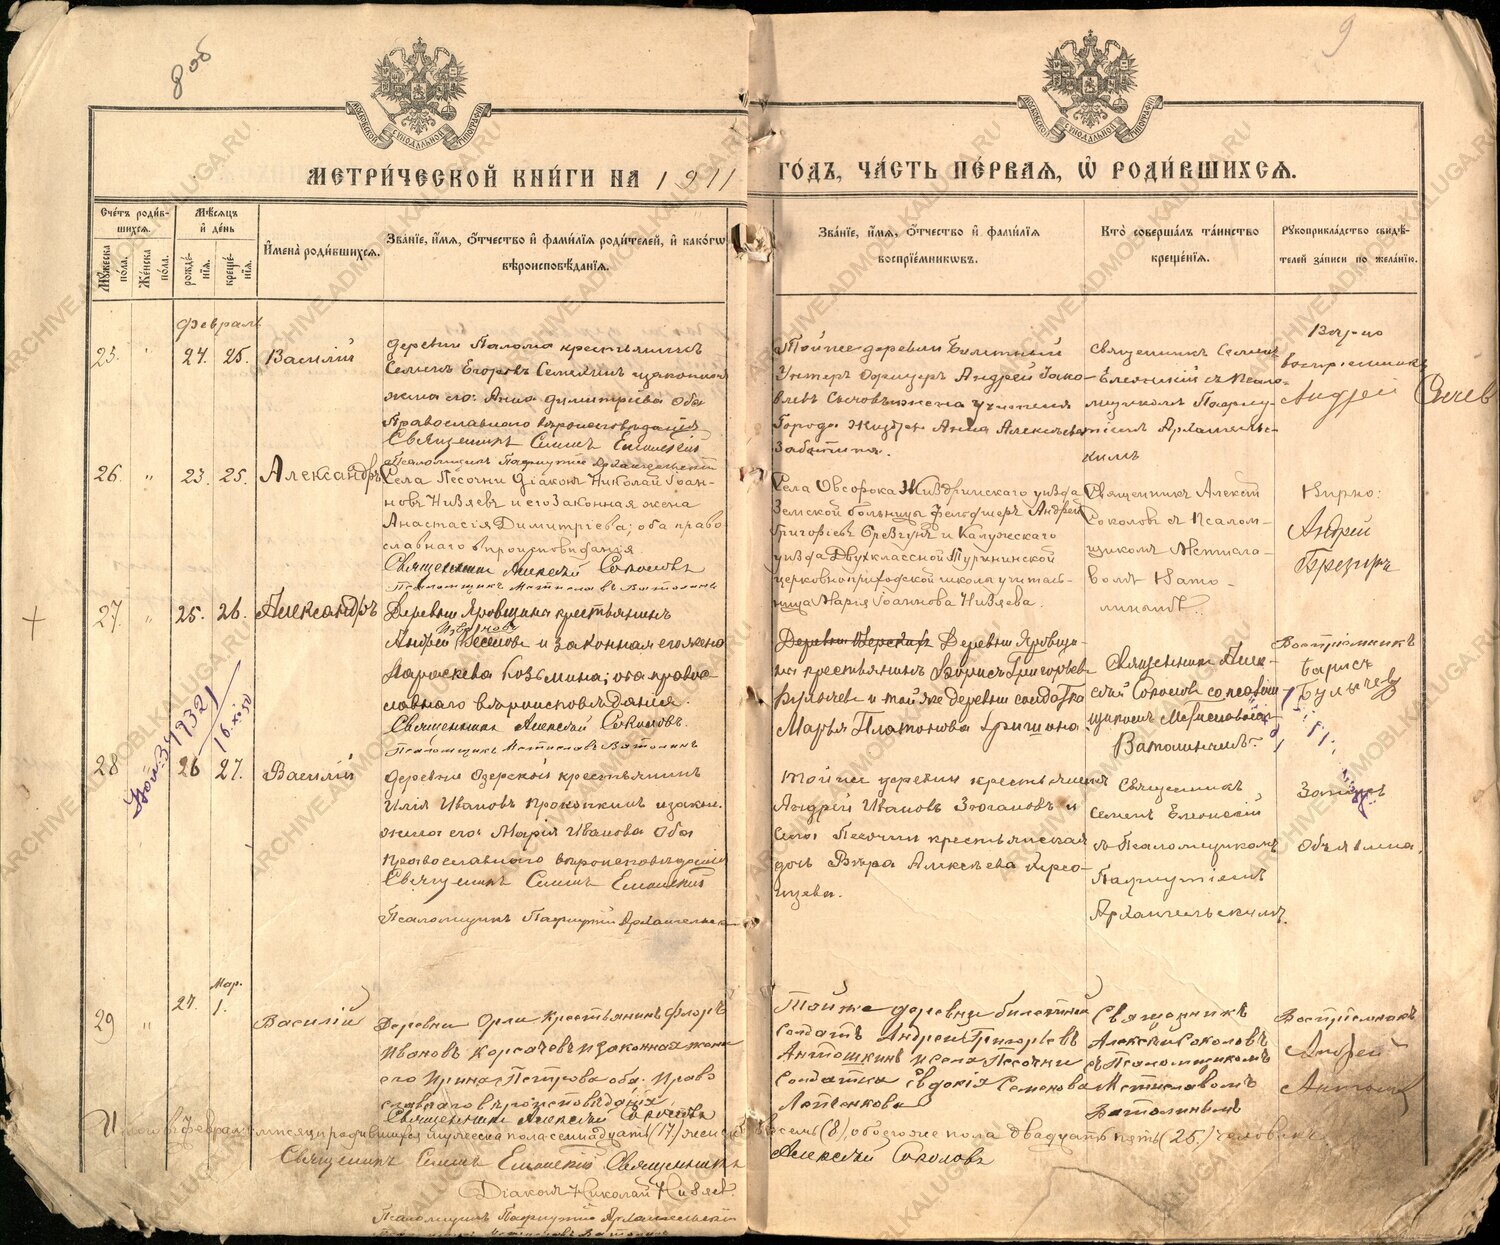 8 об
9
МЕТРИ́ЧЕСКОЙ КНИ́ГИ НА 1911
ГО́ДЪ, ЧА́СТЬ ПЕ́РВАЯ, Ѡ҆ РОДИ́ВШИХСЯ.
Сче́тъ роди́в-
шихся.
Му́жеска по́ла.
Же́нска по́ла.
Мѣ́сяцъ и҆ де́нь
рожде́-
нїя.
креще́-
нїя.
И҆мена̀ роди́вшихся.
Зва́нїе, и҆́мя, ѻ҆́тчество и҆ фами́лїя роди́телей, и҆ како́гѡ
вѣроисповѣ́данїя.
Зва́нїе, и҆́мя, ѻ҆́тчество и҆ фами́лїя
воспрїе́мникѡвъ.
Кто̀ соверша́лъ та́инство
креще́нїя.
Рꙋкоприкла́дство свидѣ́-
телей за́писи по жела́нїю.
Февраль
25. " 24. 25. Василій
деревни Палома крестьянинъ
Семенъ Егоровъ Семенинъ и законная
жена его: Анна Димитріева Оба
Православнаго вѣроисповѣданія
Священникъ Семенъ Еленскій
Псаломщикъ Пафнутій Архангельскій
Той же деревни Билетный
Унтеръ Офицеръ Андрей Яко-
влевъ Сычовъ и жена учителя
Города Жиздры Анна Алексѣева
Священникъ Семенъ
Еленскій съ Псало-
мщикомъ Пафну-
тіемъ Архангельс-
кимъ
Вѣрно
воспріемникъ
Андрей Сычев
26 " 23. 25. Александръ
Села Песочни діаконъ Николай Іоан-
новъ Низяевъ и его законная жена
Анастасія Димитріева; оба право-
славнаго вѣроисповѣданія
Священникъ Алексѣй Соколовъ
Псаломщикъ Мстиславъ Ватолинъ
Села Овсорока Жиздринскаго уѣзда
Земской больницы фельдшеръ Андрей
Григорьевъ Брезгунъ и Калужскаго
уѣзда Двухклассной Турынинской
церковноприходской школы учитель-
ница Марія Іоаннова Низяева.
Священникъ Алексѣй
Соколовъ съ Псалом-
щикомъ Мстисла-
вомъ Вато-
линымъ.
Вѣрно:
Андрей
Брезгунъ
27. " 25. 26. Александръ
Деревни Яровщины крестьянинъ
Андрей и законная его жена
Параскева Козьмина; оба право-
славнаго вѣроисповѣданія.
Священникъ Алексѣй Соколовъ.
Псаломщикъ Мстиславъ Ватолинъ
Деревни Яровщи-
ны крестьянинъ Борисъ Григорьевъ
Булычевъ и той же деревни солдатка
Марья Платонова Гришина.
Священникъ Алек-
сѣй Соколовъ со псалом-
щикомъ Мстиславомъ
Ватолинымъ.
Воспріемникъ
Борисъ
Булычевъ
16.XI.50
28 26 27. Василій
деревни Озерской крестьянинъ
Илія Ивановъ Прошкинъ и закон.
жена его: Марія Иванова Оба
православнаго вѣроисповѣданія
Священникъ Семенъ Еленскій
Псаломщикъ Пафнутій Архангельскій
Той же деревни крестьянинъ
Андрей Ивановъ Зюгановъ и
села Песочни крестьянская
дочь Вѣра Алексѣева
Священникъ
Семенъ Еленскій
съ Псаломщикомъ
Пафнутіемъ
Архангельскимъ.
Запись
Объявлена.
Мар.
29 " 27. 1. Василій
Деревни Орли крестьянинъ Флоръ
Ивановъ Корсачевъ и законная жена
его Ирина Петрова оба: Право
славнаго вѣроисповѣданія
Священникъ Алексѣй Соколовъ
Той же деревни билетный
солдатъ Андрей Григорьевъ
Антошкинъ и села Песочни
солдатка Евдокія Семенова
Священникъ
Алексѣй Соколовъ
съ Псаломщикомъ
Мстиславомъ
Ватолинымъ
Воспріемникъ
Андрей
Итого въ Февралѣ мѣсяцѣ родившихся мужеска пола семнадцать (17) женска восемь (8), обоего же пола двадцать пять (25) человѣкъ
Священникъ Семенъ Еленскій Священникъ Алексѣй Соколовъ
Діаконъ Николай Низяевъ.
Псаломщикъ Пафнутій Архангельскій